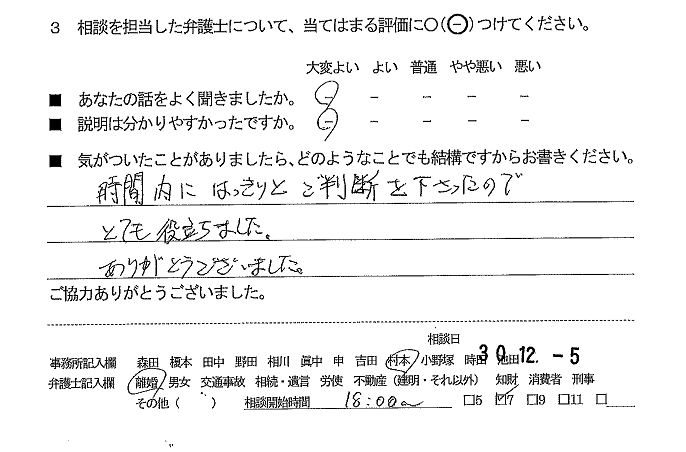 3 相談を担当した弁護士について、当てはまる評価に○(⊖)つけてください。
大変よい よい 普通 やや悪い 悪い
■ あなたの話をよく聞きましたか。 － － － － －
■ 説明は分かりやすかったですか。 － － － － －
■ 気がついたことがありましたら、どのようなことでも結構ですからお書きください。
時間内に はっきりと ご判断を下さったので
とても役立ちました。
ありがとうございました。
ご協力ありがとうございました。
相談日
30.12.-5
事務所記入欄 森田 榎本 田中 野田 相川 眞中 申 吉田 村本 小野塚 時田 池田
弁護士記入欄 離婚 男女 交通事故 相続・遺言 労使 不動産(建明・それ以外) 知財 消費者 刑事
その他( ) 相談開始時間 18:00~ □5 ☑7 □9 □11 □